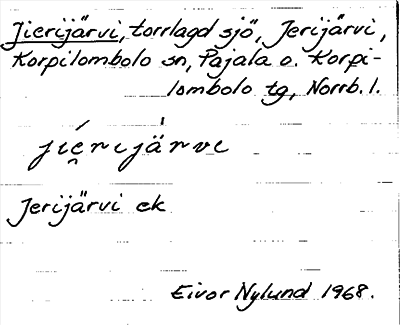 Jierijärvi, torrlagd sjö, Jerijärvi,
Korpilombolo sn, Pajala o. Korpi-
lombolo tg, Norrb. l.
jíe̯rijä̍rvi
Jerijärvi ek
Eivor Nylund 1968.